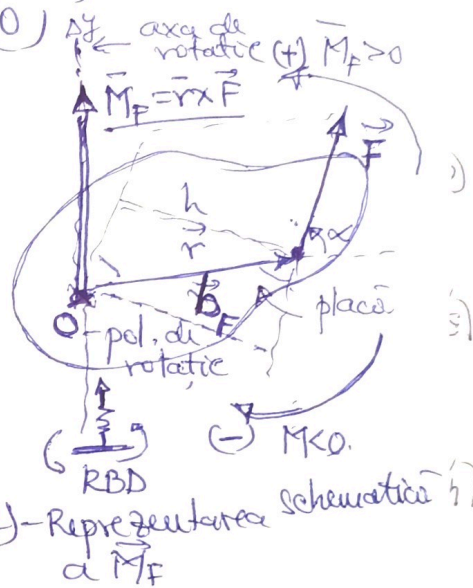 0) Δy axa de
rotatie (+) M̄_F>0
M̄_F=r̄×F⃗
F⃗
h
r⃗
α
b_F
placă
O -pol, de
rotație
(-) M<0.
RBD
-)-Reprezentarea schematică
a M⃗_F